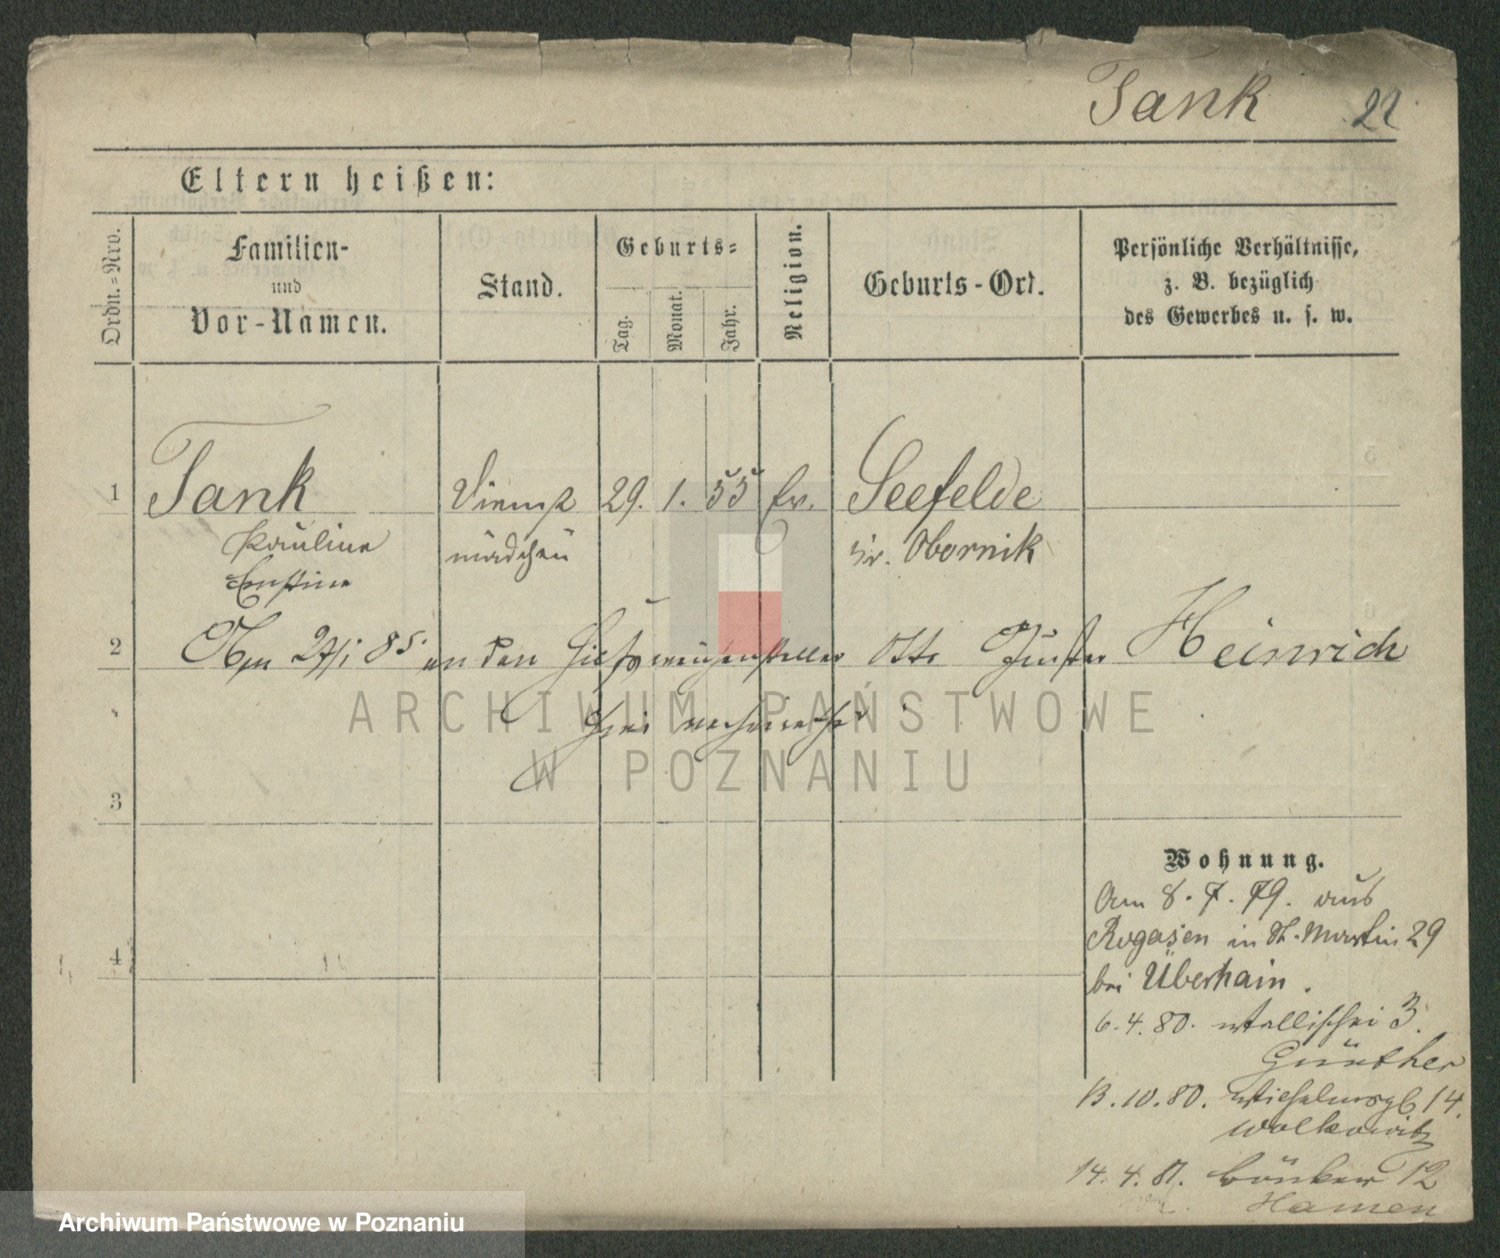 Tank 22
Eltern heißen:
Ordn.-Nro.
Familien-
und
Vor-Namen.
Stand.
Geburts-
Tag.
Monat.
Jahr.
Religion.
Geburts-Ort.
Persönliche Verhältnisse,
z. B. bezüglich
des Gewerbes u. s. w.
1 Tank Dienst 29. 1. 55 Ev. Seefelde
Pauline mädchen Kr. Obornik
Ernstine
2 Am 27/1 85 an den Hilfsweichensteller Otto Heinrich
hier verheirathet
3
Wohnung.
Am 8. 7. 79. aus
Rogasen in St. Martin 29
4
bei Überhain.
6. 4. 80. Wallischei 3.
Günther
13. 10. 80. 14.
Wolkowitz
14. 4. 81. 12
Hamen
ARCHIWUM PAŃSTWOWE
W POZNANIU
Archiwum Państwowe w Poznaniu